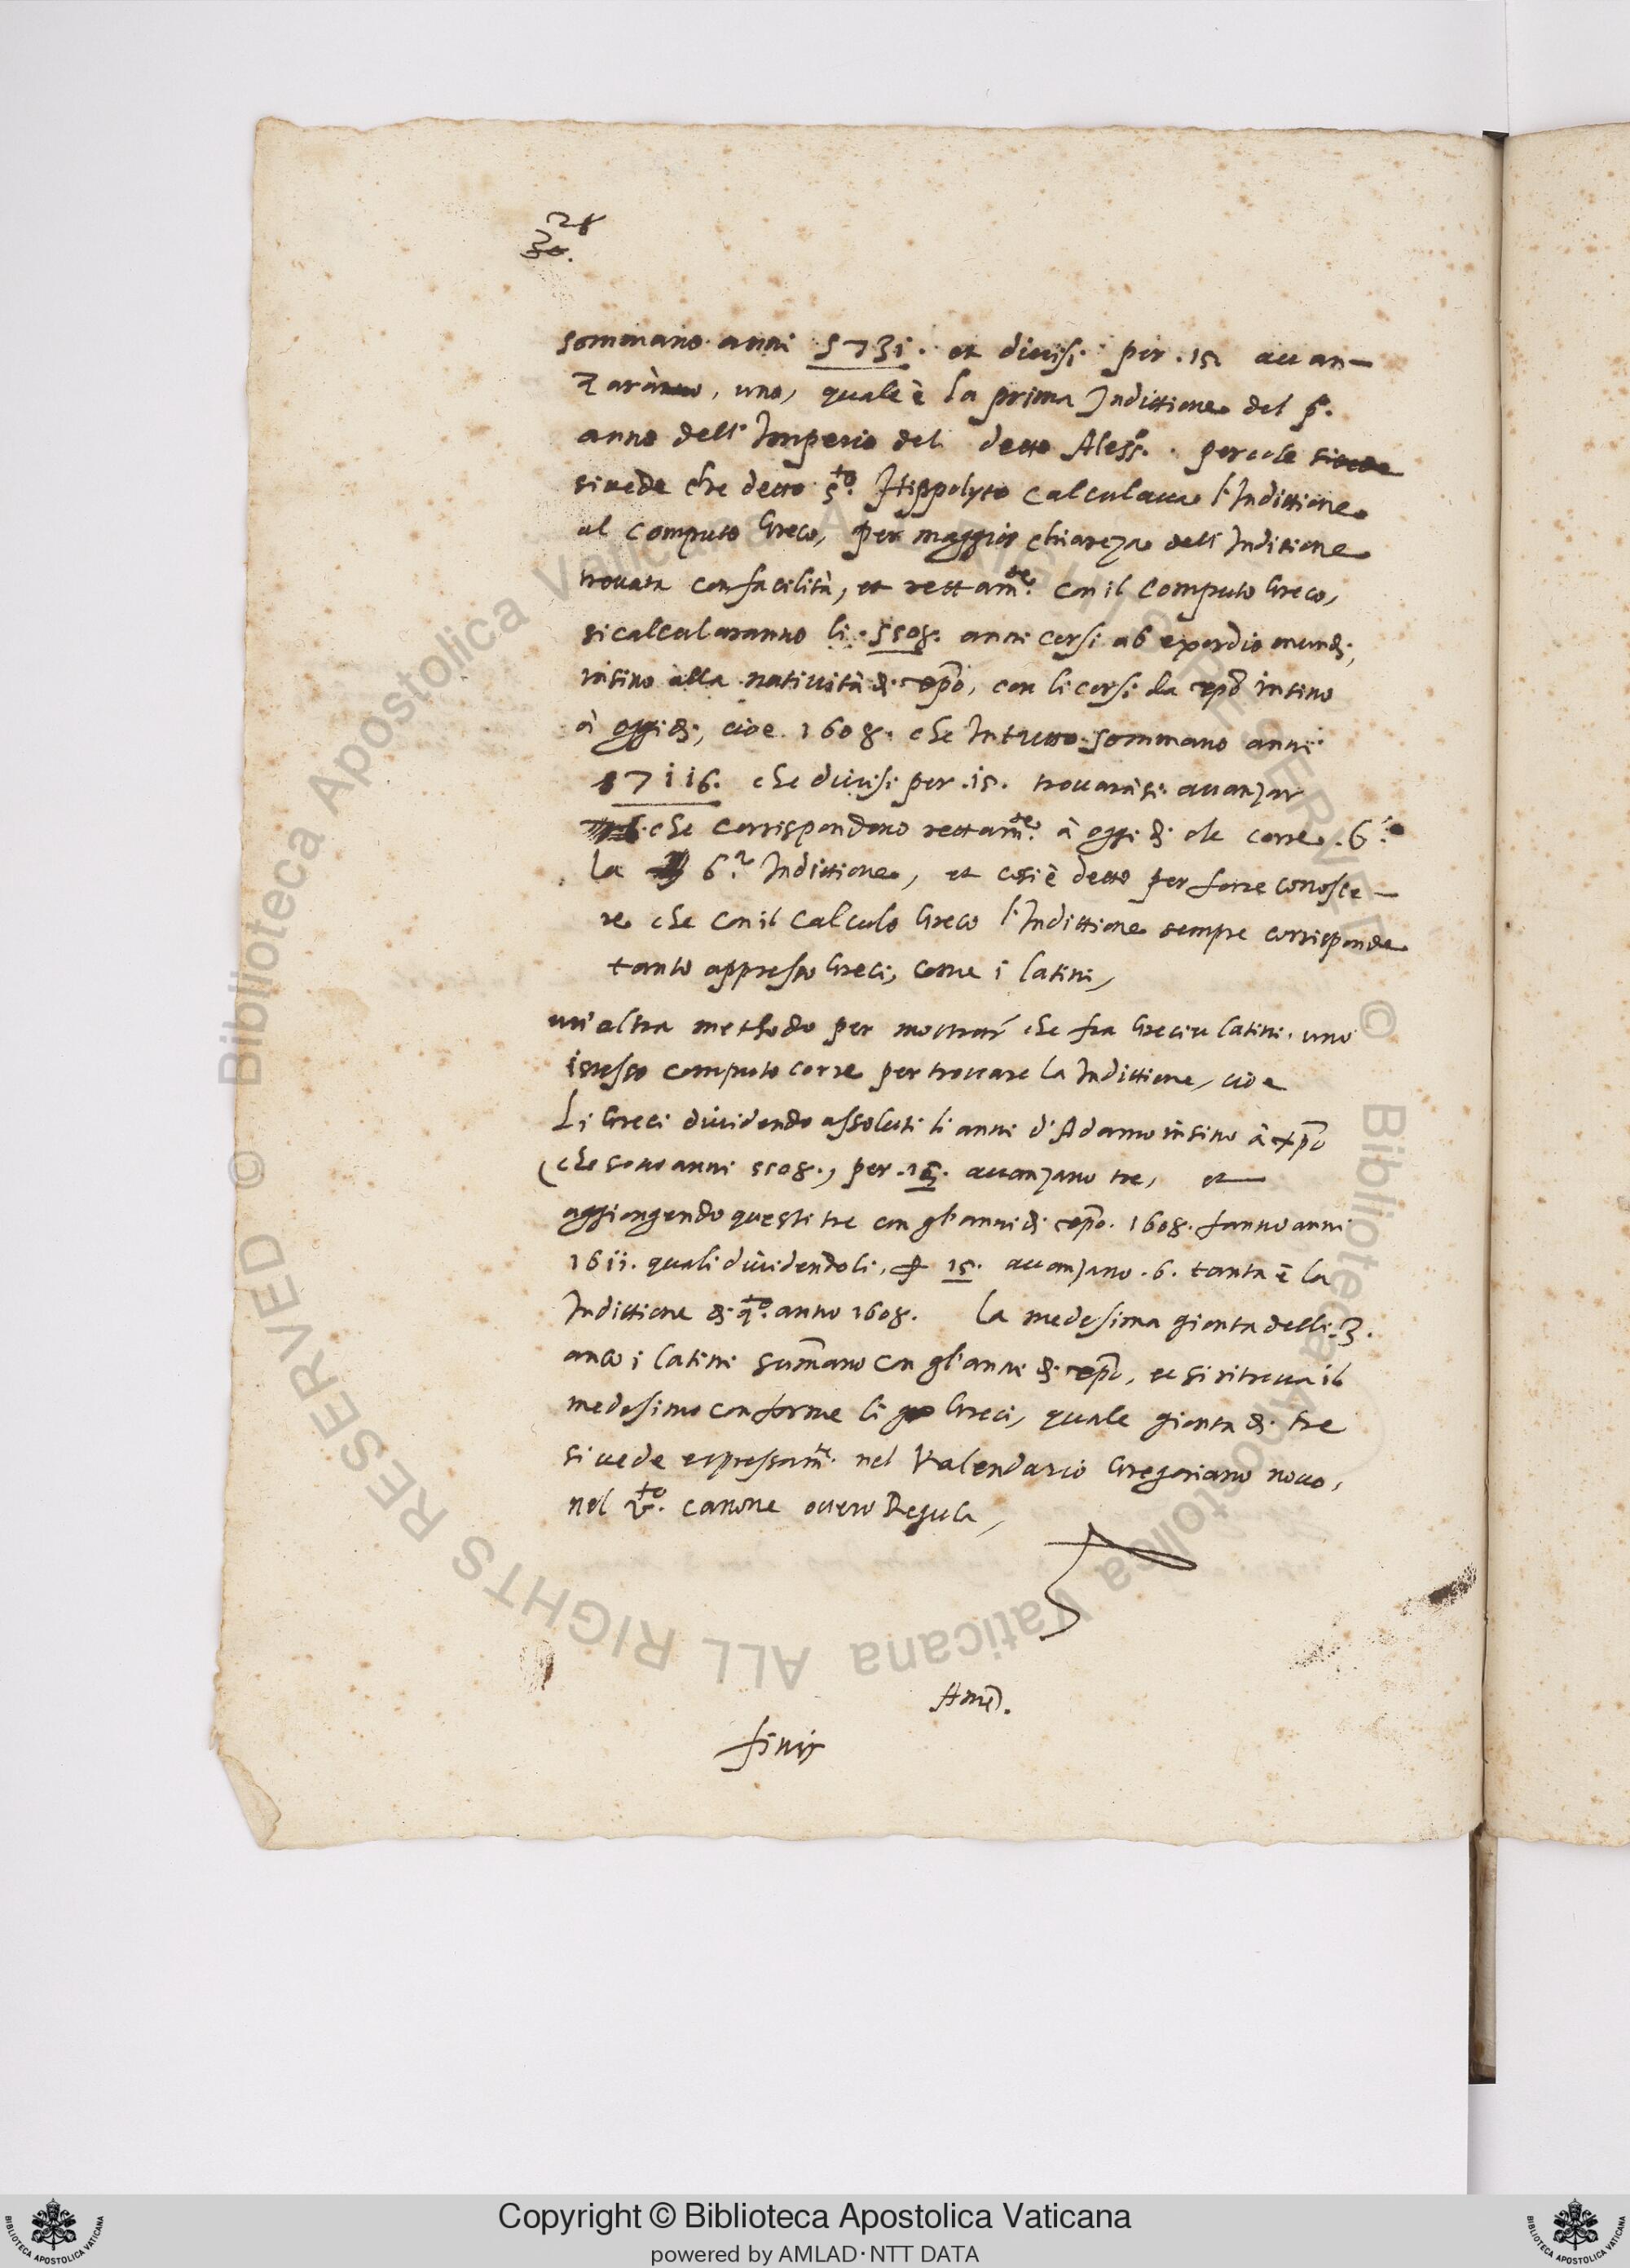 28
30.
sommano anni 5731. et divisi per .15. auan-
zarà, uno, quale è la prima Indittione del p.º
anno dell' Imperio del detto Aless.º. per cole
si uede che detto s.to Hippolyto calculaua l'Indittione
al computo Greco, per maggior chiareza dell' Inditione
trouata con facilità, et rettam.te con il computo Greco,
si calcularanno li .5508. anni corsi ab exordio mundi,
insino alla natiuità di xpo, con li corsi da xpo insino
à oggi di, cioe 1608. che in tutto sommano anni
7116. che diuisi per .15. trouarasi auanzar
6. che correspondono rettam.te à oggi di che corre .6.
la 6.a Indittione, et cosi è detto per farre conosce-
re che con il calculo Greco l'Indittione sempre corrisponde
tanto appresso Greci, come i latini,
un'altra methodo per mostrar che fra Greci e latini uno
istesso computo corre per trouare la Indittione, cioe
Li Greci diuidendo assoluti li anni d'Adamo insino à xpo
(che sono anni 5508., per .15. auanzano tre, et
aggiongendo questi tre con gl'anni di xpo. 1608. fanno anni
1611. quali diuidendoli, p 15. auanzano .6. tanta è la
Indittione di q.to anno 1608. La medesima gionta delli .3.
anco i latini summano con gl'anni di xpo, et si ritroua il
medesimo conforme li Greci, quale gionta di tre
si uede espressam.te nel Kalendario Gregoriano nouo,
nel v.to canone ouero Regula,
Amē.
finis
© Biblioteca Apostolica Vaticana ALL RIGHTS RESERVED © Biblioteca Apostolica Vaticana ALL RIGHTS RESERVED
Copyright © Biblioteca Apostolica Vaticana
powered by AMLAD·NTT DATA
BIBLIOTECA APOSTOLICA VATICANA
BIBLIOTECA APOSTOLICA VATICANA